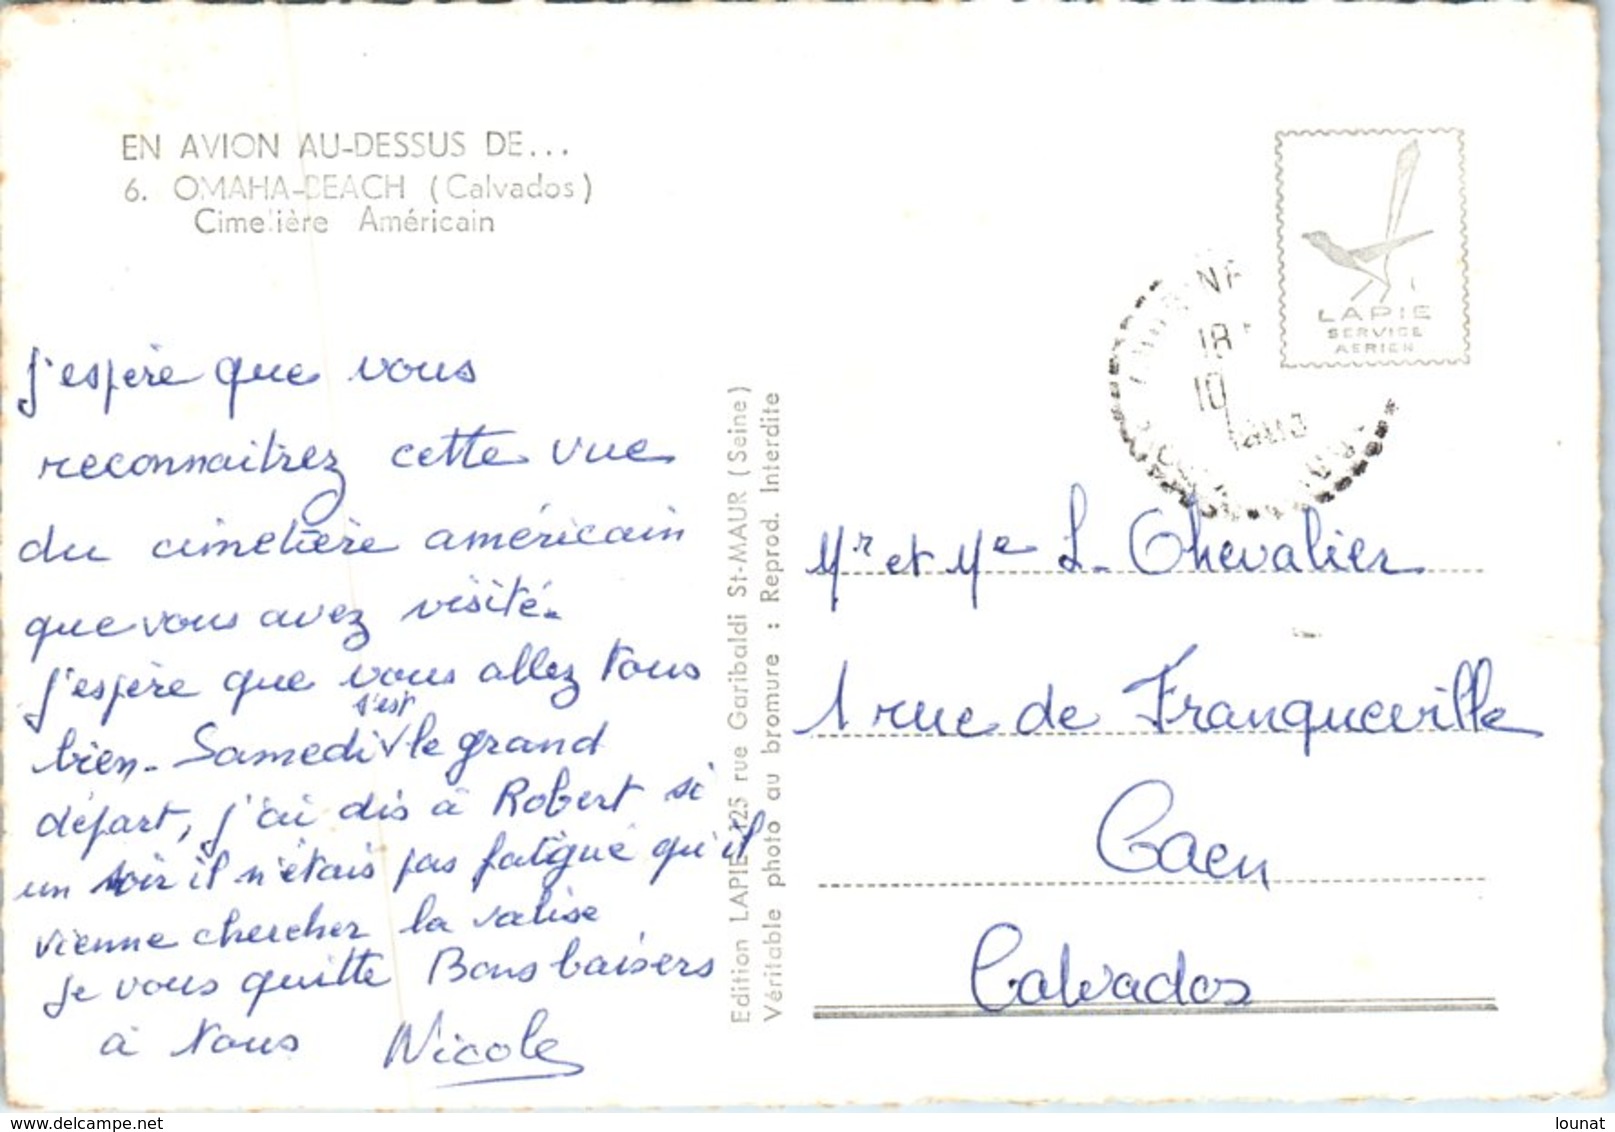 EN AVION AU-DESSUS DE...
6. OMAHA-BEACH (Calvados)
Cimetière Américain
j'espère que vous
reconnaitrez cette vue
du cimetière américain
que vous avez visité.
j'espère que vous allez tous
s'est
bien. Samedi le grand
départ, j'ai dis à Robert si
un soir il n'étais pas fatigué qu'il
vienne chercher la valise
je vous quitte Bons baisers
à tous Nicole
Edition LAPIE 125 rue Garibaldi St-MAUR (Seine)
Véritable photo au bromure : Reprod. Interdite
LAPIE
SERVICE
AERIEN
18
10
Mr et Me L. Chevalier
1 rue de Franqueville
Caen
Calvados
lounat